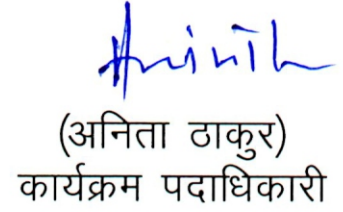 (अनिता ठाकुर)
कार्यक्रम पदाधिकारी